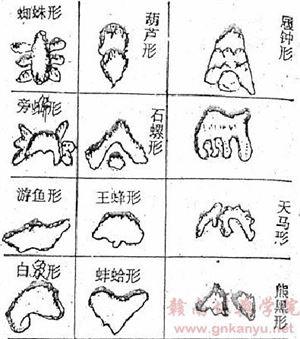 蜘蛛形
葫芦形
钟形
旁蟹形
石螺形
游鱼形
王蜂形
天马形
白象形
蚌蛤形
熊黑形
赣 学院
www.gnkanyu.net